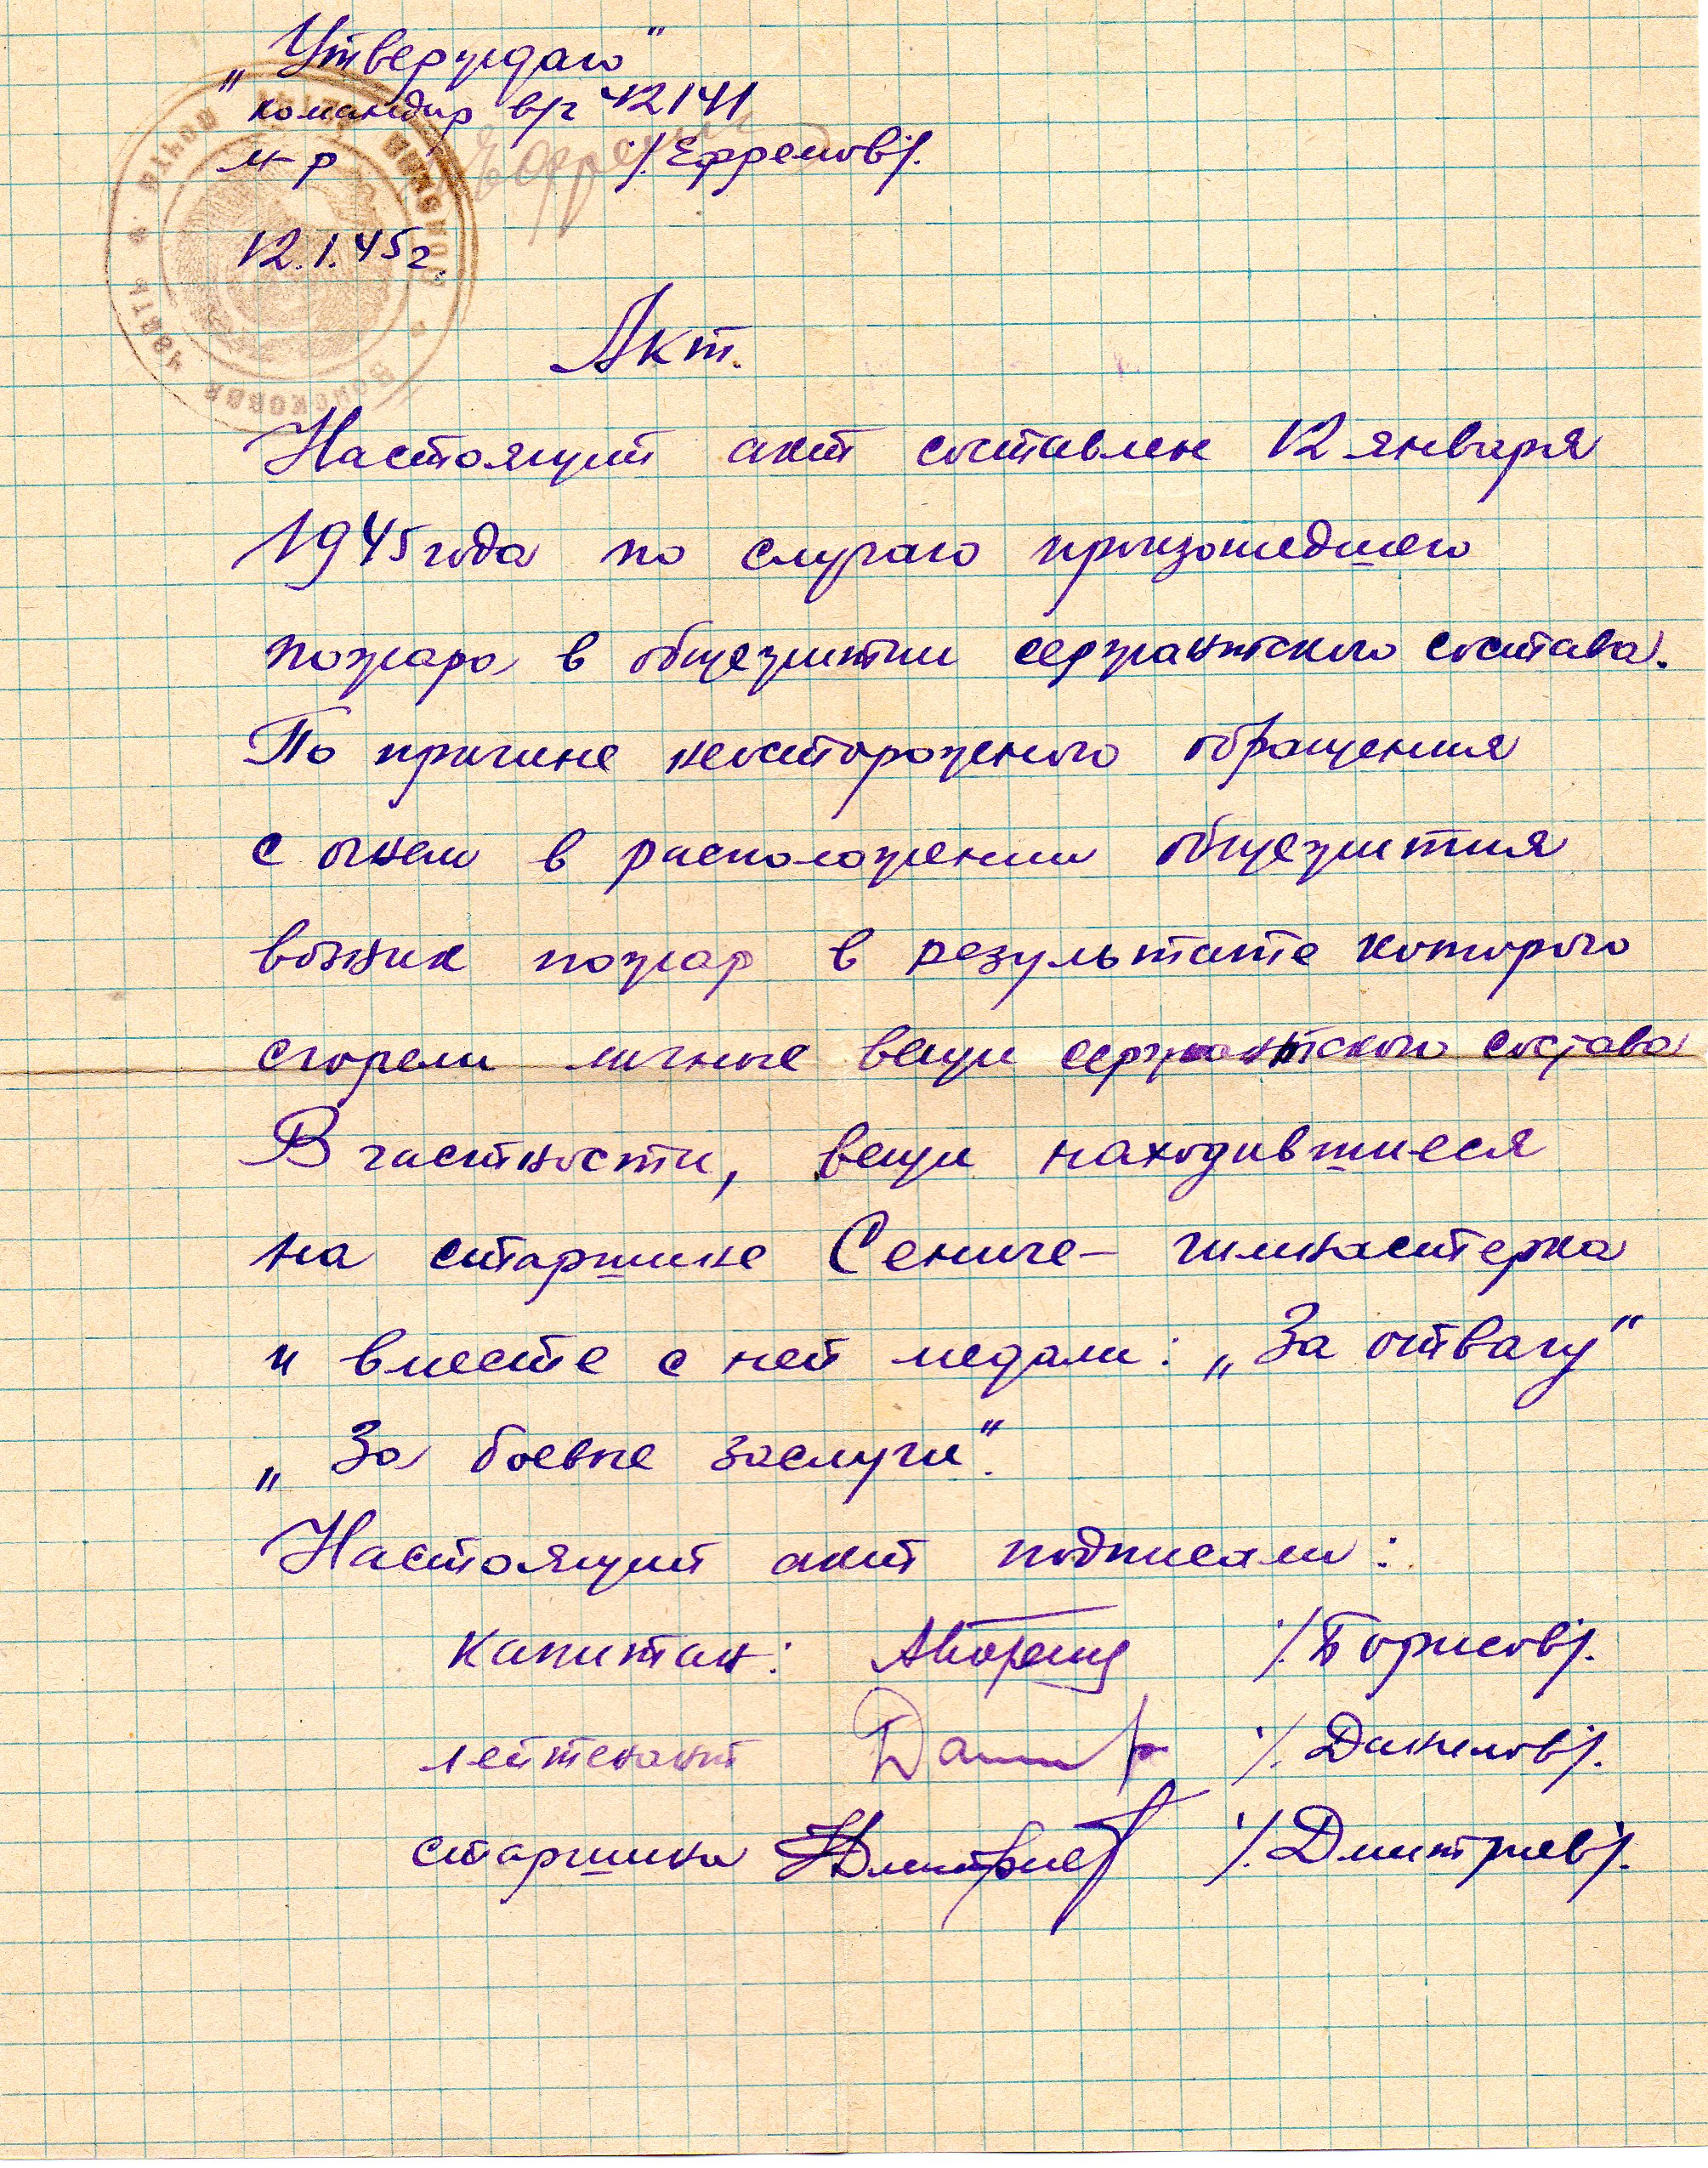 „Утверждаю"
командир в/ч 42141
м-р /Ефремов/.
12.1.45г.
Акт.
Настоящий акт составлен 12 января
1945 года по случаю произошедшего
пожара в общежитии сержантского состава.
По причине неосторожного обращения
с огнем в расположении общежития
возник пожар в результате которого
сгорели личные вещи сержантского состава
В частности, вещи находившиеся
на старшине Сениче – гимнастерка
и вместе с ней медали: „За отвагу"
„За боевые заслуги".
Настоящий акт подписали:
капитан: /Борисов/.
лейтенант /Данилов/.
старшина Дмитриев /Дмитриев/.